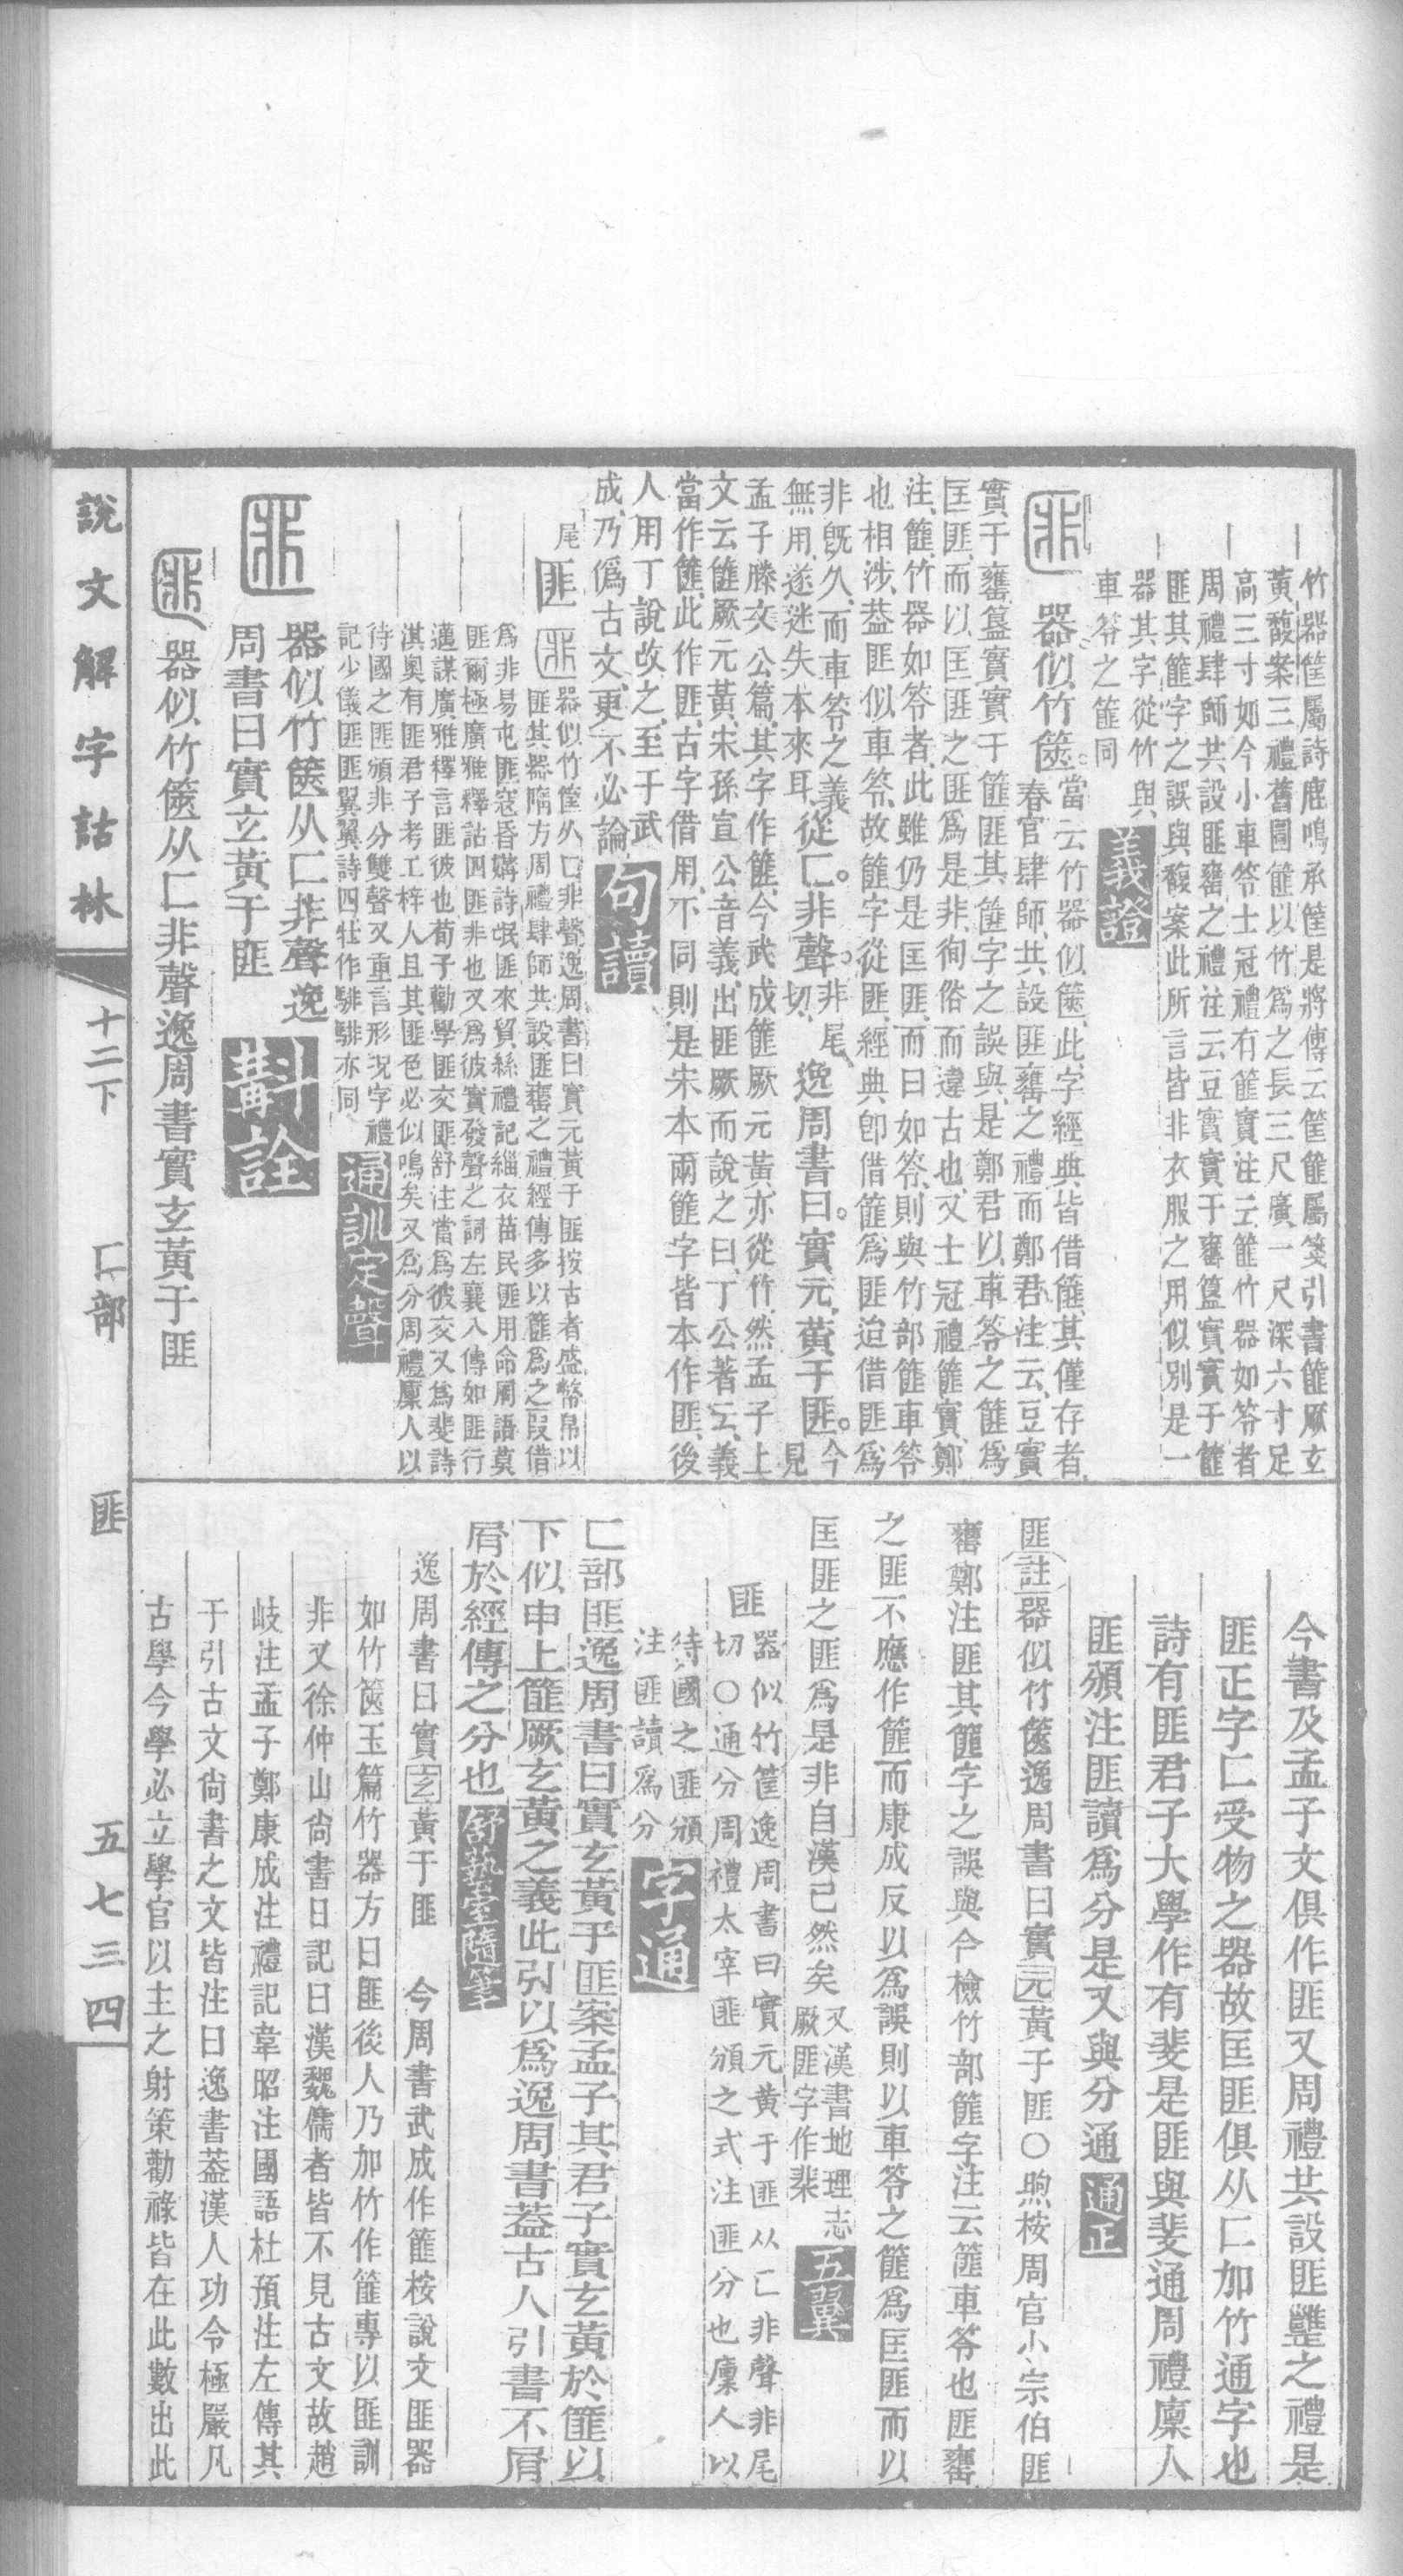 竹器筐屬詩鹿鳴承筐是將傳云筐篚屬箋引書篚厥玄
黃馥案三禮舊圖篚以竹爲之長三尺廣一尺深六寸足
高三寸如今小車笭士冠禮有篚實注云篚竹器如笭者
周禮肆師共設匪罋之禮注云豆實實于罋簋實實于篚
匪其篚字之誤與馥案此所言皆非衣服之用似別是一
器其字從竹與
車笭之篚同
義證
器似竹篋。當云竹器似篋、此字經典皆借篚、其僅存者
春官肆師、共設匪罋之禮、而鄭君注云、豆實
實于罋、簋實實于篚匪其篚字之誤與、是鄭君以車笭之篚爲
匡匪、而以匡匪之匪爲是非、徇俗而違古也、又士冠禮篚實、鄭
注、篚、竹器如笭者、此雖仍是匡匪、而曰如笭、則與竹部篚車笭
也相涉、葢匪似車笭、故篚字從匪、經典卽借篚爲匪、迨借匪爲
非旣久、而車笭之義
無用、遂迷失本來耳、從匚。非聲。非尾切、逸周書曰。實元黃于匪。今見
孟子滕文公篇、其字作篚、今武成篚厥元黃、亦從竹、然孟子上
文云篚厥元黃、宋孫宣公音義、出匪厥而說之曰、丁公著云、義
當作篚、此作匪、古字借用、不同、則是宋本兩篚字皆本作匪、後
人用丁說改之、至于武
成、乃僞古文、更不必論、
句讀
尾
匪
器似竹筐从匚非聲逸周書曰實元黃于匪按古者盛幣帛以
匪其器隋方周禮肆師共設匪罋之禮經傳多以篚爲之叚借
爲非易屯匪寇昏媾詩氓匪來貿絲禮記緇衣苗民匪用命周語莫
匪爾極廣雅釋詁四匪非也又爲彼實發聲之詞左襄八傳如匪行
邁謀廣雅釋言匪彼也荀子勸學匪交匪舒注當爲彼交又爲斐詩
淇奧有匪君子考工梓人且其匪色必似鳴矣又爲分周禮廩人以
待國之匪頒非分雙聲又重言形況字禮
記少儀匪匪翼翼詩四牡作騑騑亦同
通訓定聲
器似竹篋从匚非聲逸
周書曰實玄黃于匪
斠詮
器似竹篋从匚非聲逸周書實玄黃于匪
今書及孟子文俱作匪又周禮共設匪釁之禮是
匪正字匚受物之器故匡匪俱从匚加竹通字也
詩有匪君子大學作有斐是匪與斐通周禮廩人
匪頒注匪讀爲分是又與分通
通正
匪註器似竹篋逸周書曰實元黃于匪○煦桉周官小宗伯匪
罋鄭注匪其篚字之誤與今檢竹部篚字注云篚車笭也匪罋
之匪不應作篚而康成反以爲誤則以車笭之篚爲匡匪而以
匡匪之匪爲是非自漢已然矣又漢書地理志
厥匪字作棐
五翼
匪
器似竹筐逸周書曰實元黃于匪从匚非聲非尾
切○通分周禮太宰匪頒之式注匪分也廩人以
待國之匪頒
注匪讀爲分
字通
匚部匪逸周書曰實玄黃于匪案孟子其君子實玄黃於篚以
下似申上篚厥玄黃之義此引以爲逸周書葢古人引書不屑
屑於經傳之分也
舒藝室隨筆
逸周書曰實玄黃于匪　今周書武成作篚桉說文匪器
如竹篋玉篇竹器方曰匪後人乃加竹作篚專以匪訓
非又徐仲山尙書日記曰漢魏儒者皆不見古文故趙
岐注孟子鄭康成注禮記韋昭注國語杜預注左傳其
于引古文尙書之文皆注曰逸書葢漢人功令極嚴凡
古學今學必立學官以主之射策勸祿皆在此數出此
說文解字詁林
十二下
匚部
匪
五七三四